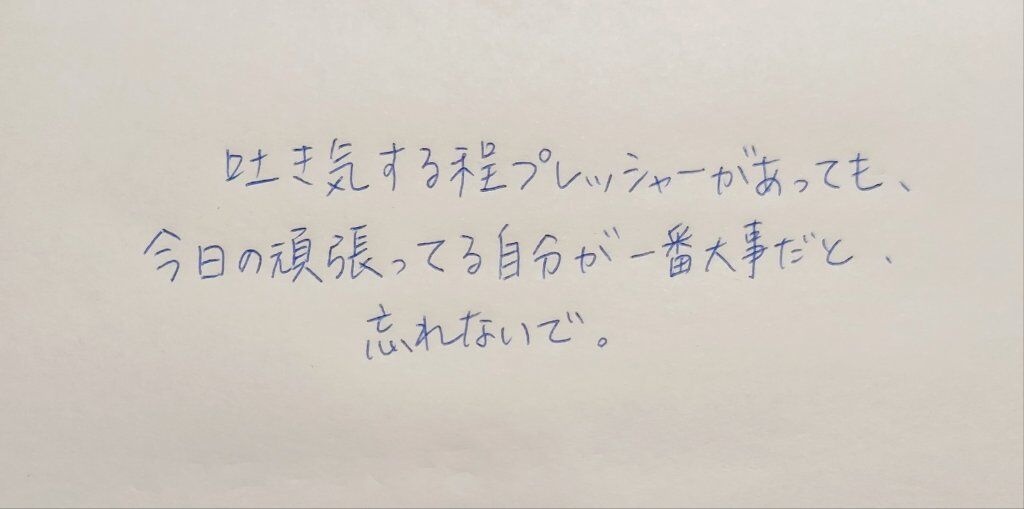 吐き気する程プレッシャーがあっても、
今日の頑張ってる自分が一番大事だと、
忘れないで。